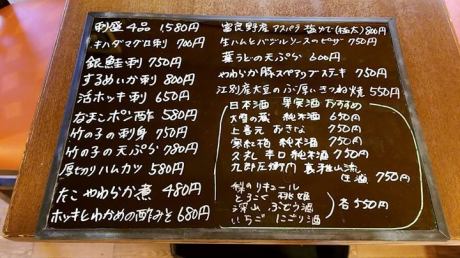 刺盛4品 1,580円
キハダマグロ刺 700円
銀鮭刺 750円
するめいか刺 800円
活ホッキ刺 650円
なまこポン酢 580円
竹の子の刺身 750円
竹の子の天ぷら 780円
厚切りハムカツ 580円
たこやわらか煮 480円
ホッキとわかめの酢みそ 680円
富良野産アスパラ塩ゆで(極太) 800円
生ハムとバジルソースのピザ 750円
葉うどの天ぷら 600円
やわらか豚スペアリブステーキ 750円
江別産大豆のぶ厚いきつね焼 550円
日本酒 果実酒 おすすめ
大雪の蔵 純米酒 650円
上喜元 おきな 750円
寒紅梅 純米酒 750円
久礼 辛口 純米酒 750円
九郎左衛門 裏雅山流
生酒 750円
梅のリキュール
とろこく 桃姫
深山 ぶどう酒
いちご にごり酒
各550円